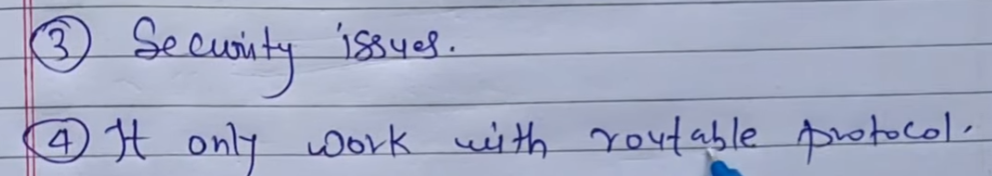 ③ Security issues.
④ It only work with routable protocol.